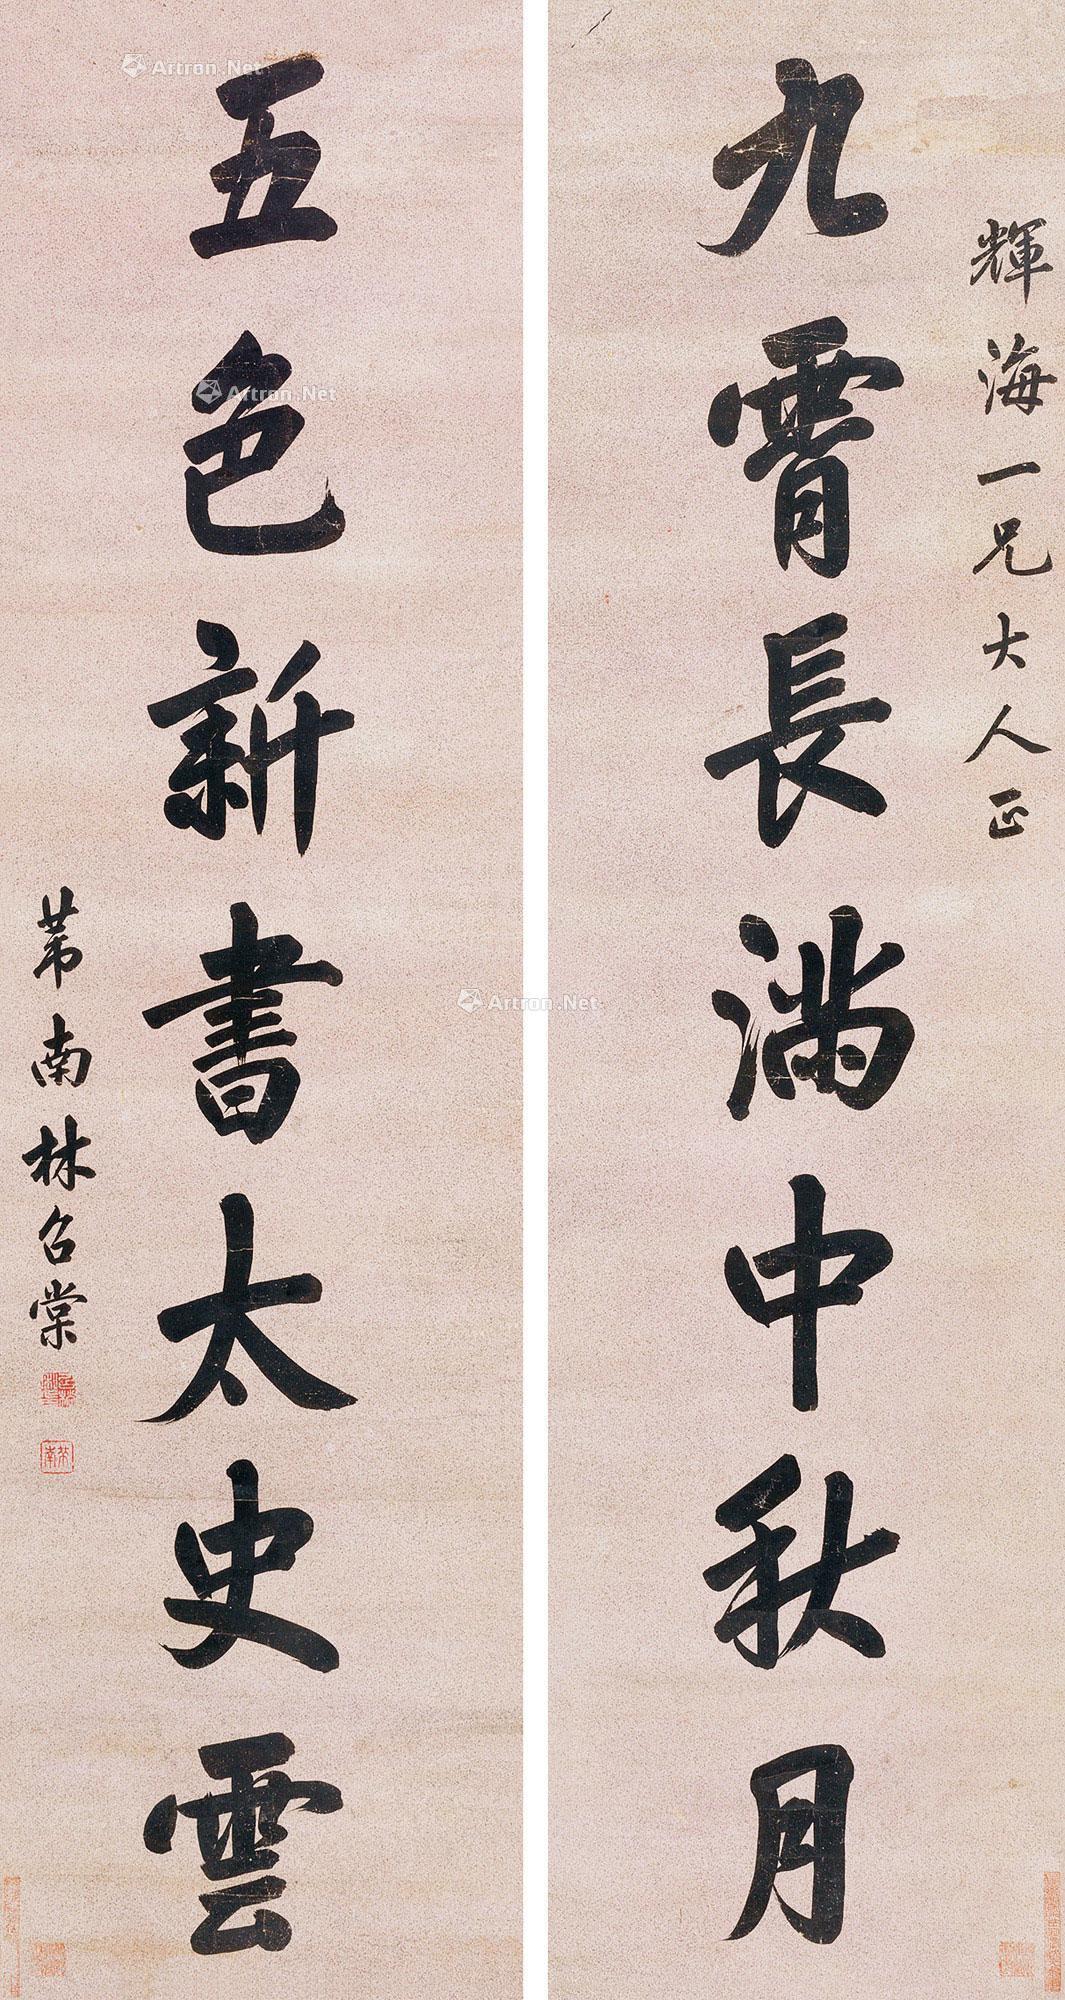 輝海一兄大人正
九霄長滿中秋月
五色新書太史雲
芾南林召棠
芾南
Artron.Net
Artron.Net
Artron.Net